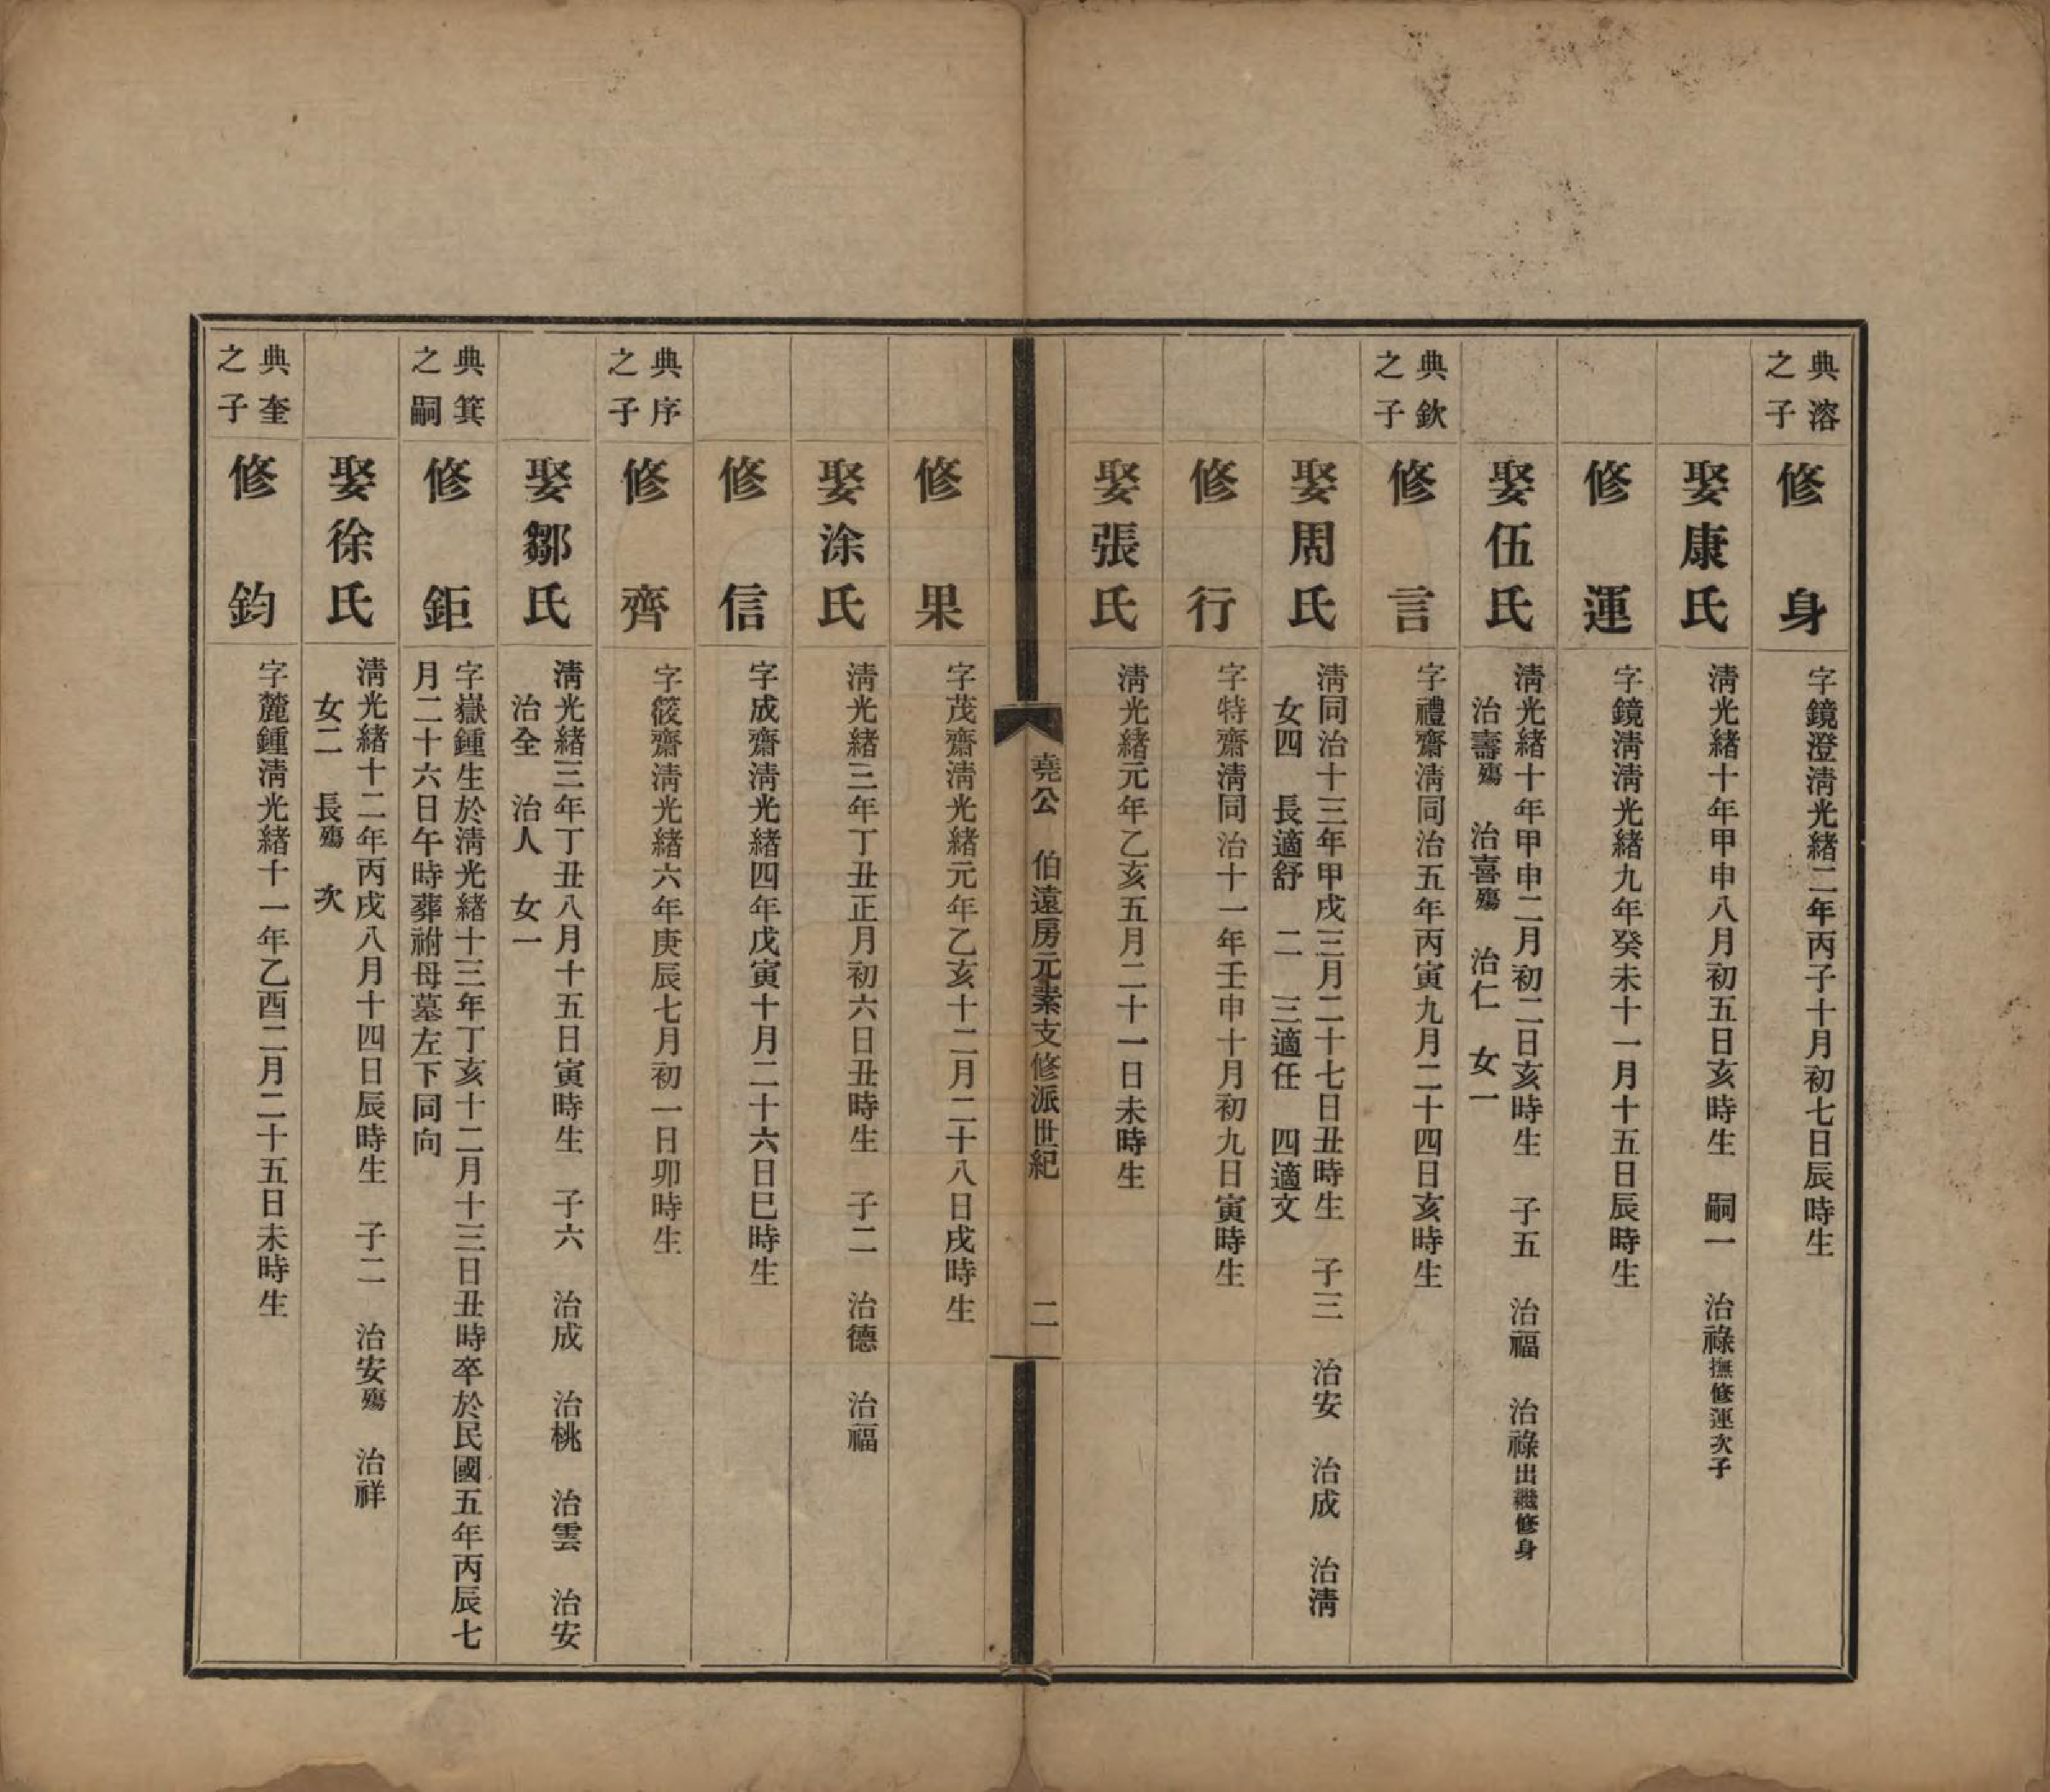 典溶
之子
修身
字鏡澄淸光緒二年丙子十月初七日辰時生
娶康氏
淸光緒十年甲申八月初五日亥時生　嗣一　治祿撫修運次子
修運
字鏡淸淸光緒九年癸未十一月十五日辰時生
娶伍氏
淸光緒十年甲申二月初二日亥時生　子五　治福　治祿出繼修身
治壽殤　治喜殤　治仁　女一
典欽
之子
修言
字禮齋淸同治五年丙寅九月二十四日亥時生
娶周氏
淸同治十三年甲戌三月二十七日丑時生　子三　治安　治成　治淸
女四　長適舒　二　三適任　四適文
修行
字特齋淸同治十一年壬申十月初九日寅時生
娶張氏
淸光緒元年乙亥五月二十一日未時生
堯公　伯遠房元素支修派世紀　二
修果
字茂齋淸光緒元年乙亥十二月二十八日戌時生
娶涂氏
淸光緒三年丁丑正月初六日丑時生　子二　治德　治福
修信
字成齋淸光緒四年戊寅十月二十六日巳時生
典序
之子
修齊
字筱齋淸光緒六年庚辰七月初一日卯時生
娶鄒氏
淸光緒三年丁丑八月十五日寅時生　子六　治成　治桃　治雲　治安
治全　治人　女一
典箕
之嗣
修鉅
字嶽鍾生於淸光緒十三年丁亥十二月十三日丑時卒於民國五年丙辰七
月二十六日午時葬祔母墓左下同向
娶徐氏
淸光緒十二年丙戌八月十四日辰時生　子二　治安殤　治祥
女二　長殤　次
典奎
之子
修鈞
字麓鍾淸光緒十一年乙酉二月二十五日未時生